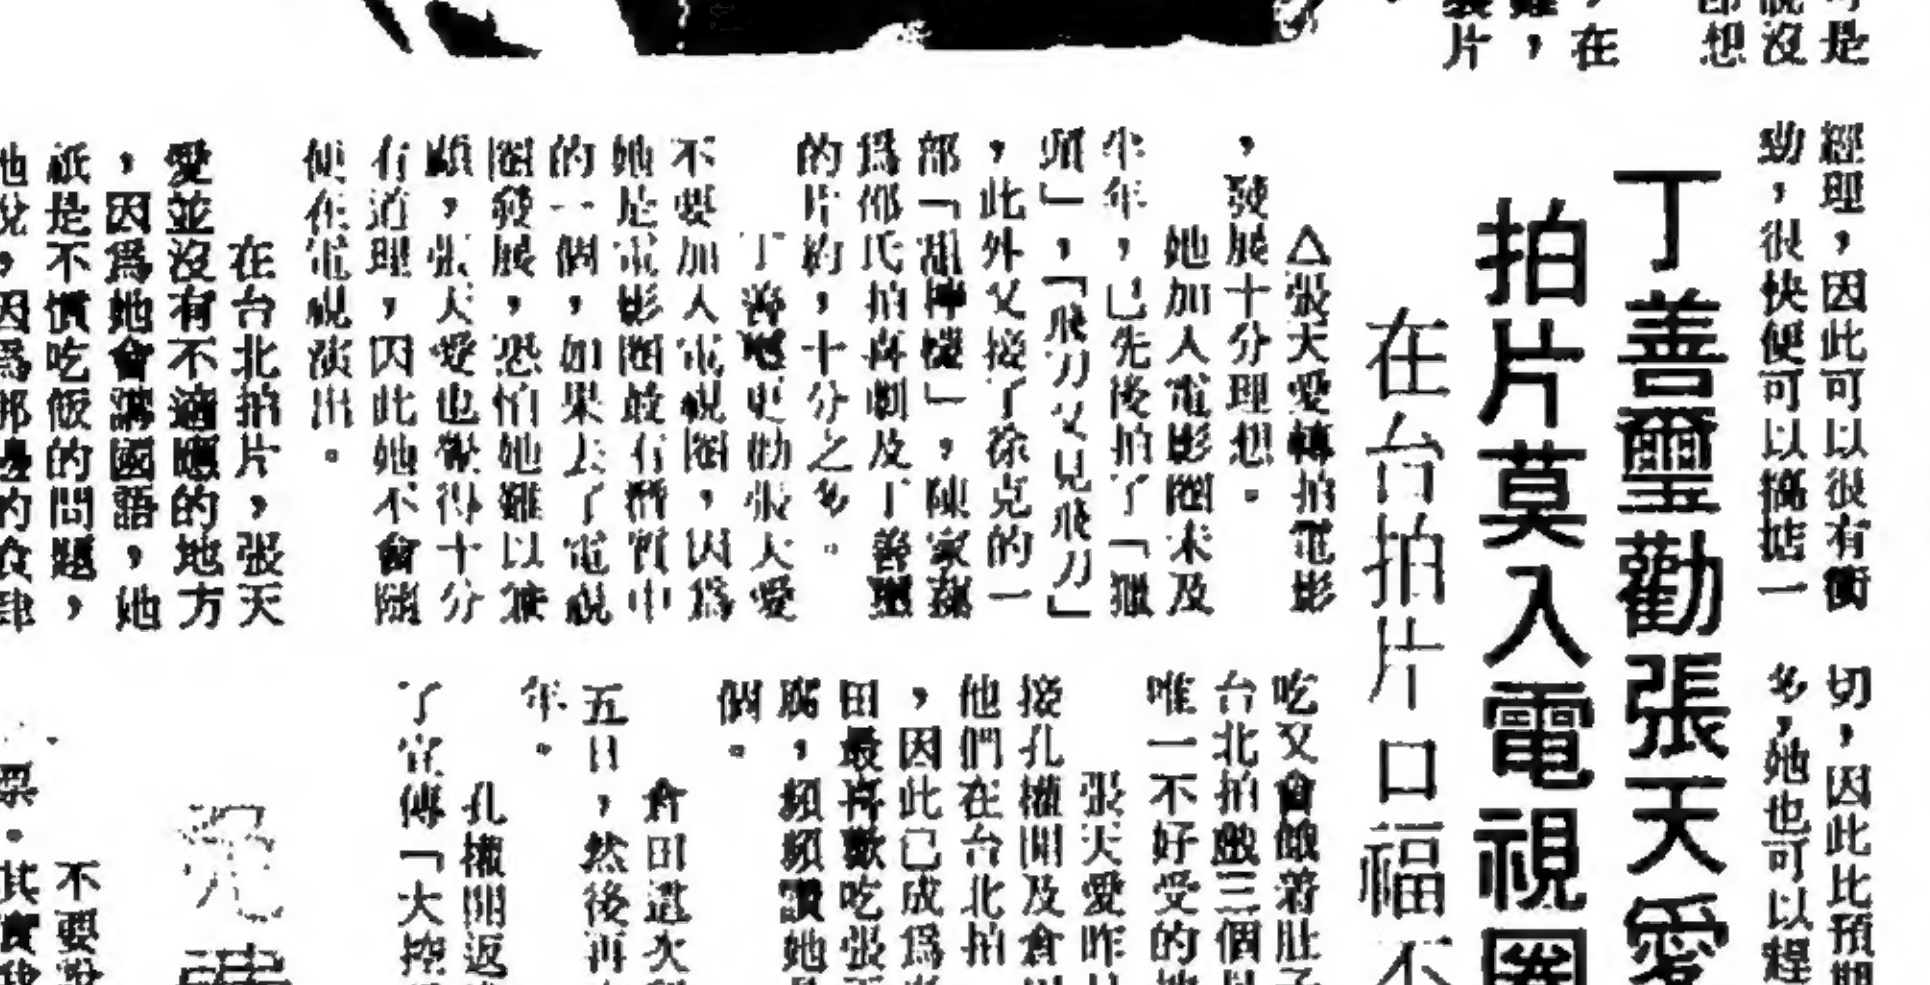 可是
說沒
部想
，在
，
裝片
經理，因此可以很有衝
勁，很快便可以搞掂一
切，因此比預期
多，她也可以趕
丁善璽勸張天愛
拍片莫入電視圈
在台拍片口福不
△張天愛轉拍電影
，發展十分理想。
她加入電影圈未及
半年，已先後拍了「獵
頭」，「飛刀又見飛刀」
，此外又接了徐克的一
部「胡神機」，陳家蓀
爲邵氏拍喜劇及丁善璽
的片約，十分之多。
丁善璽更勸張天愛
不要加入電視圈，因爲
她是電影圈最有潛質中
的一個，如果去了電視
圈發展，恐怕她難以兼
顧，張天愛也覺得十分
有道理，因此她不會隨
便在電視演出。
在台北拍片，張天
愛並沒有不適應的地方
，因爲她會講國語，她
祇是不慣吃飯的問題，
她說，因爲那邊的食肆
吃又會餓着肚子
台北拍戲三個月
唯一不好受的地
張天愛昨日
接孔權開及倉田
他們在台北拍
，因此已成爲
田最喜歡吃張
，頻頻讚她
個。
倉田這次
五日，然後再
年。
孔權開返
了宣傳「大控
不要說
票。其實